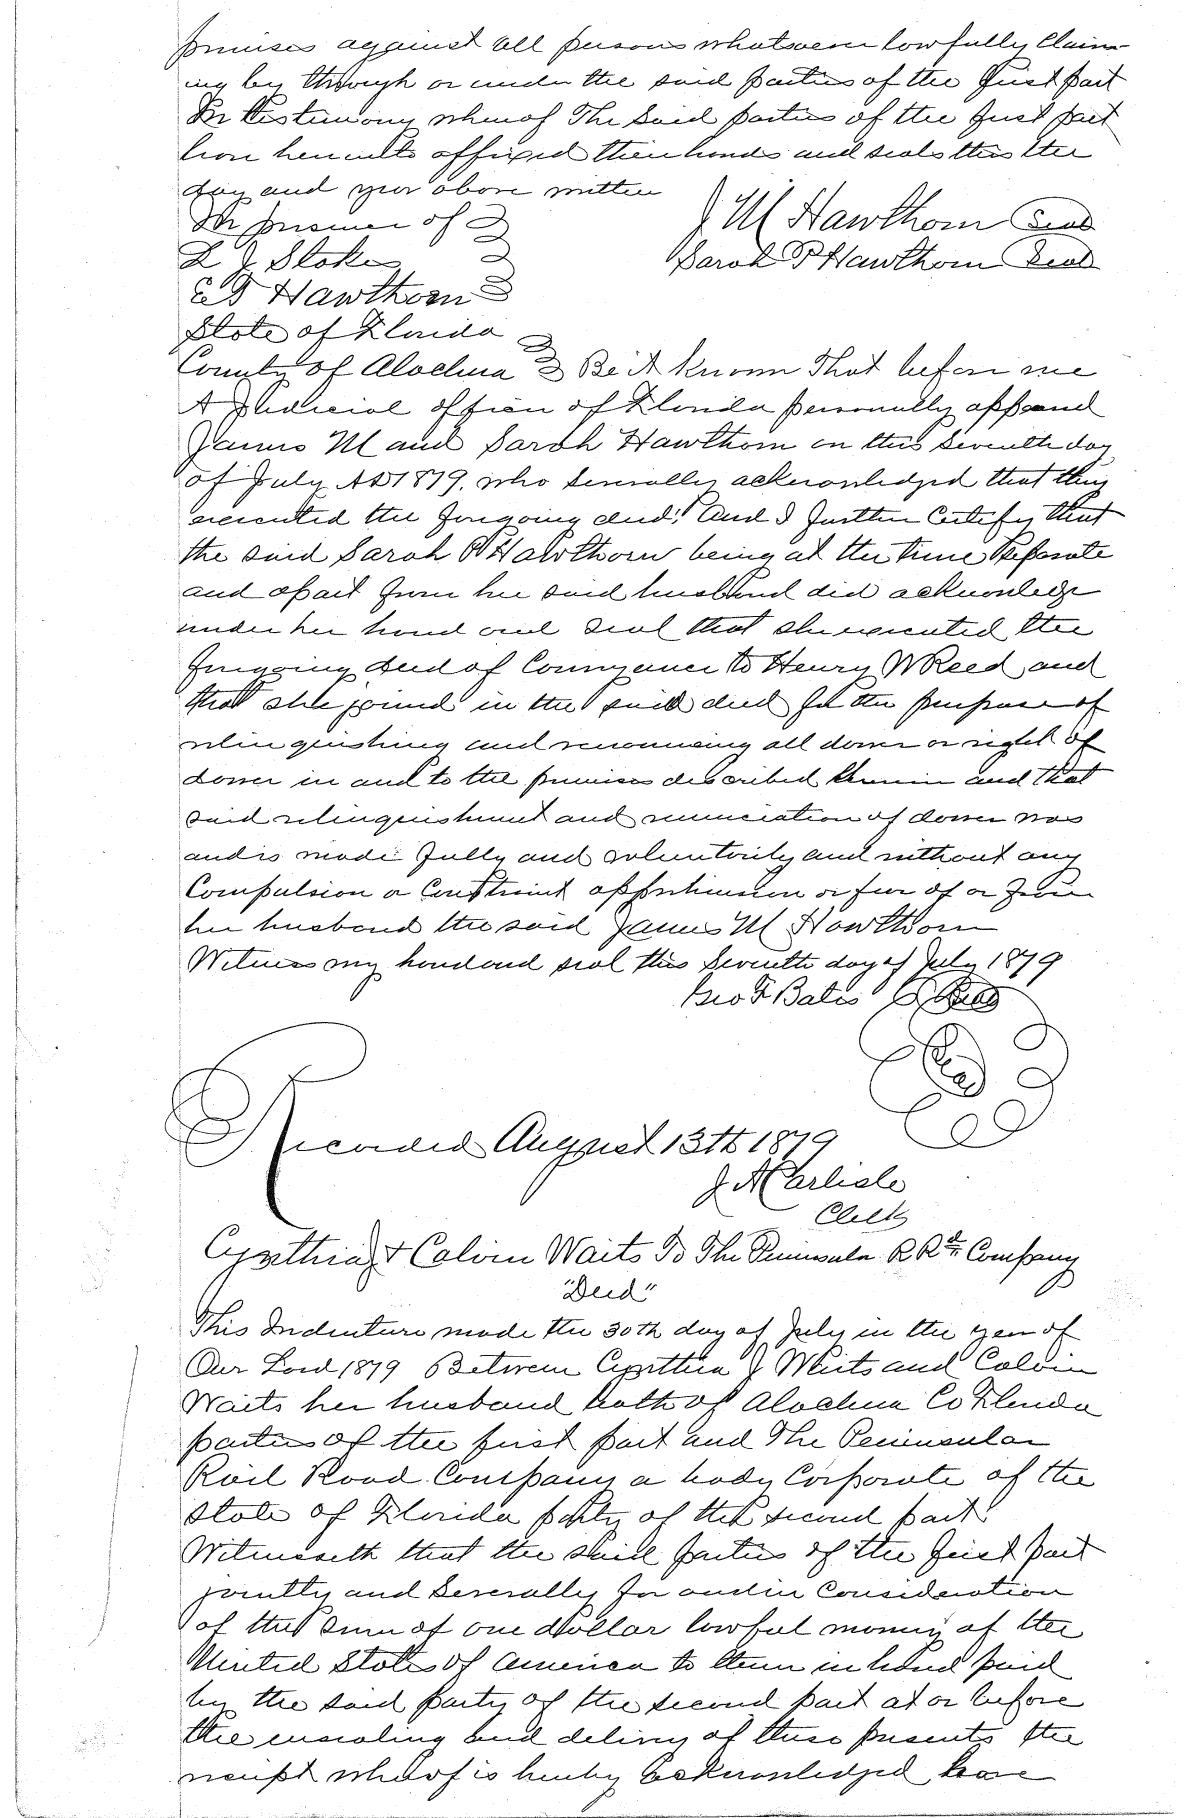 premises against all persons whatsoever lawfully Claim-
ing by through or under the said parties of the first part
In testimony whereof The Said parties of the first part
have hereunto affixed their hands and seals this the
day and year above written
In presence of
J M Hawthorn Seal
L J Stokes
Sarah P Hawthorn Seal
C F Hawthorn
State of Florida
County of Alachua Be it known That before me
A Judicial officer of Florida personally appeared
James M and Sarah Hawthorn on this Seventh day
of July AD 1879. who severally acknowledged that they
executed the foregoing deed! And I further Certify that
the said Sarah P Hawthorn being at the time Seperate
and apart from her said husband did acknowledge
under her hand and seal that she executed the
foregoing deed of Conveyance to Henry W Reed and
that she joined in the said deed for the purpose of
relinquishing and renouncing all dower or right of
dower in and to the premises described therein and that
said relinquishment and renunciation of dower was
and is made fully and voluntarily and without any
Compulsion or Constraint apprehension or fear of or from
her husband the said James M Hawthorn
Witness my hand and seal this Seventh day of July 1879
Geo F Bates
Seal
Recorded August 13th 1879
J A Carlisle
Clerk
Cynthia J + Calvin Waits To The Peninsula R Rd Company
"Deed"
This Indenture made the 30th day of July in the year of
Our Lord 1879 Between Cynthia J Waits and Calvin
Waits her husband both of Alachua Co Florida
parties of the first part and The Peninsular
Rail Road Company a body Corporate of the
State of Florida party of the second part!
Witnesseth that the said parties of the first part
jointly and Severally for and in Consideration
of the sum of one dollar lawful money of the
United States of America to them in hand paid
by the said party of the second part at or before
the ensealing and delivery of these presents the
receipt whereof is hereby acknowledged have